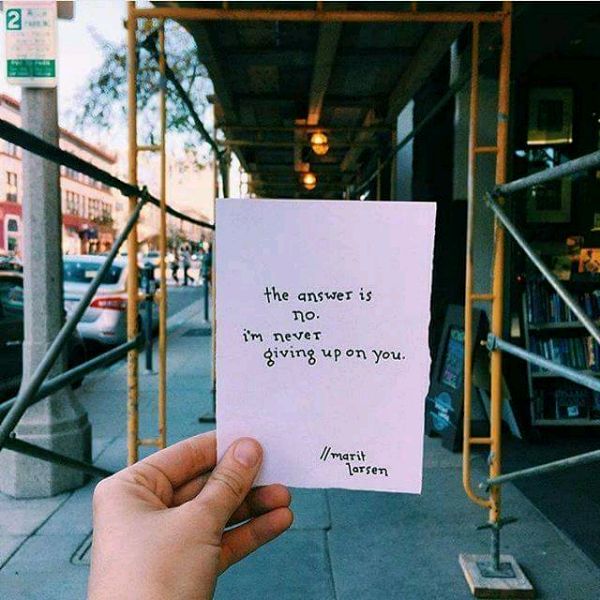 2
the answer is
no.
i'm never
giving up on you.
//marit
larsen